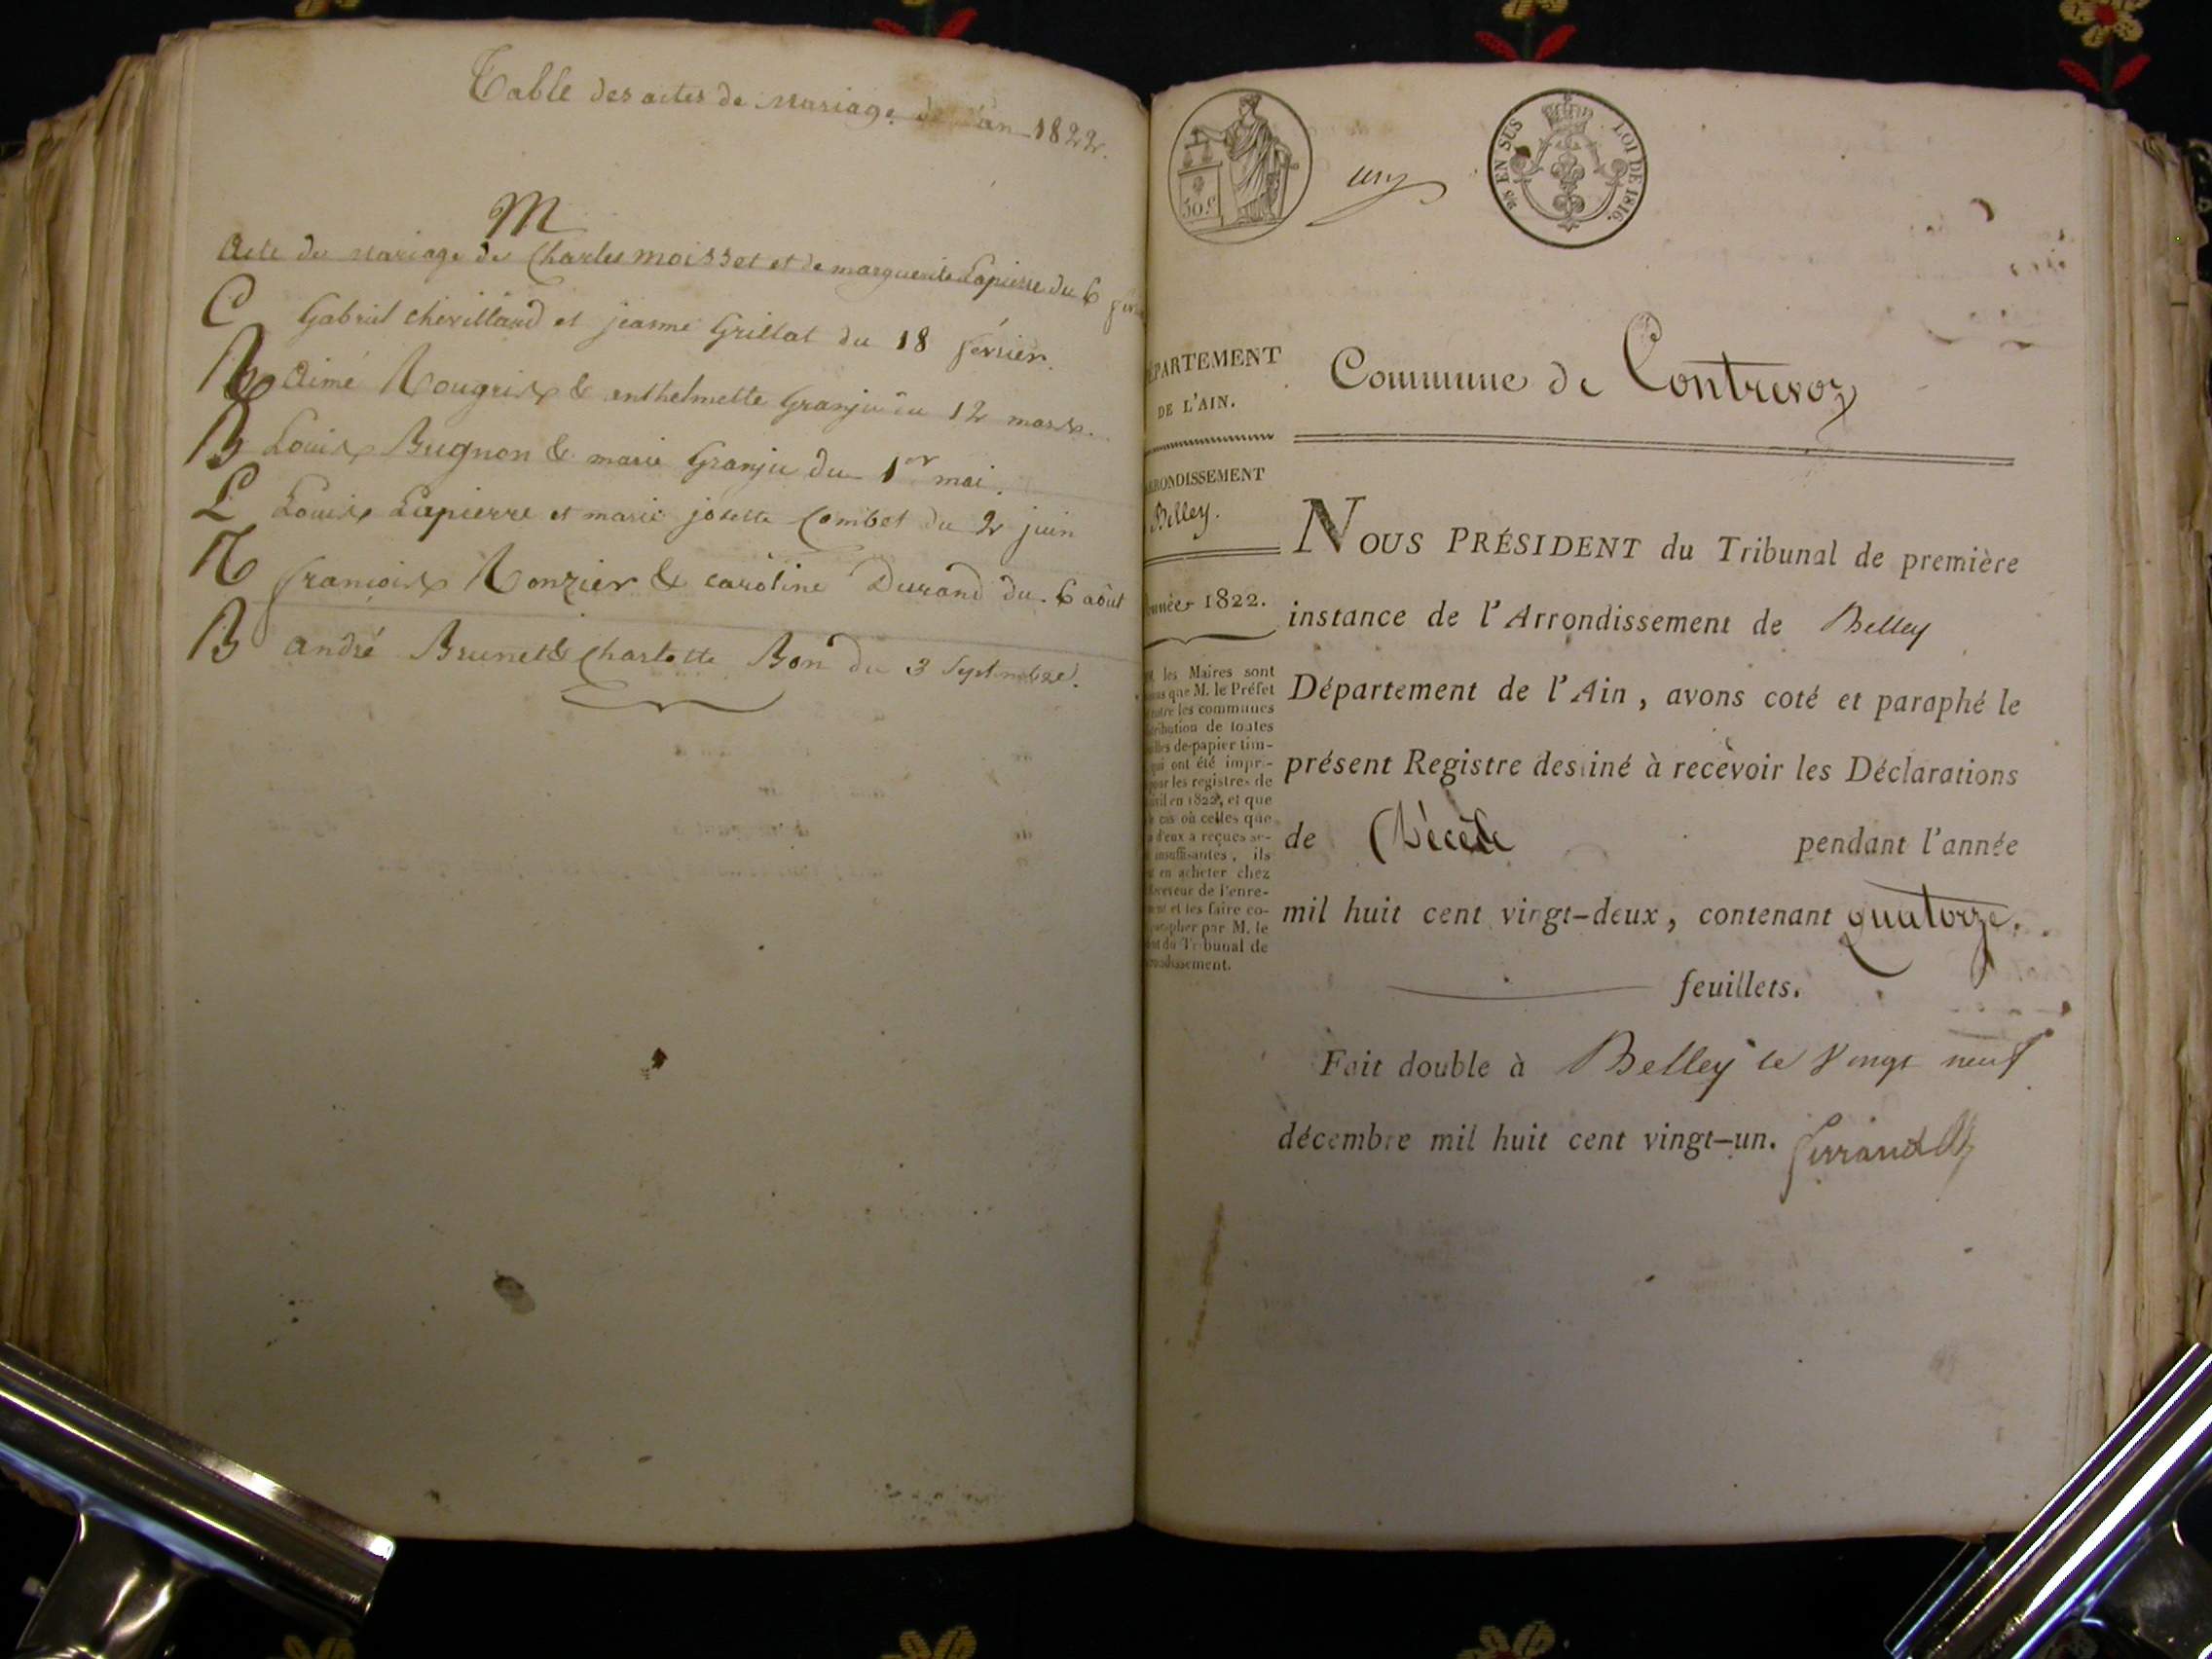 Table des actes de mariage de l'an 1822.
M
Acte de mariage de Charles moisset et de marguerite Lapierre du 6
C Gabriel chevilland et jeanne Grillat du 18 février.
R Aimé Rougrix & enthelmette Granju du 12 mars.
B Louis Bugnon & marie Granju du 1er mai.
L Louis Lapierre et marie josette Combet du 2 juin
R françois Ronzier & caroline Durand du 6 août
B andré Brunet & Charlotte Bon du 3 Septembre.
50 c
un
EN SUS LOI DE 1816.
DÉPARTEMENT
DE L'AIN.
ARRONDISSEMENT
Belley.
Année 1822.
les Maires sont
que M. le Préfet
entre les communes
distribution de toutes
feuilles de papier tim-
qui ont été impri-
pour les registres de
civil en 1822, et que
le cas où celles que
d'eux a reçues se-
insuffisantes, ils
en acheter chez
Receveur de l'enre-
et les faire co-
parapher par M. le
du Tribunal de
Commune de Contrevoz
NOUS PRÉSIDENT du Tribunal de première
instance de l'Arrondissement de Belley
Département de l'Ain, avons coté et paraphé le
présent Registre destiné à recevoir les Déclarations
de Décès pendant l'année
mil huit cent vingt-deux, contenant quatorze.
feuillets.
Fait double à Belley le Vingt neuf
décembre mil huit cent vingt-un.